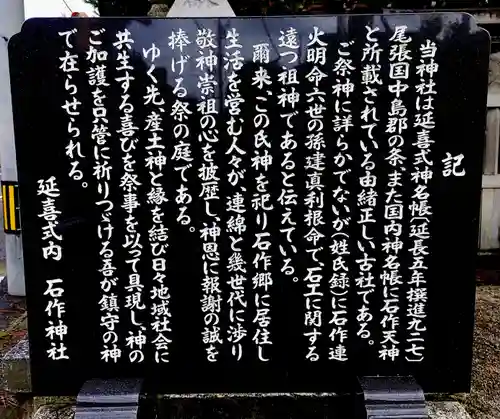 記
当神社は延喜式神名帳(延長五年撰進九二七)
尾張国中島郡の条、また国内神名帳に石作天神
と所載されている由緒正しい古社である。
ご祭神に詳らかでないが、姓氏録に石作連
火明命六世の孫建真利根命で、石工に関する
遠つ祖神であると伝えている。
爾来、この氏神を祀り石作郷に居住し
生活を営む人々が、連綿と幾世代に渉り
敬神崇祖の心を披歴し、神恩に報謝の誠を
捧げる祭の庭である。
ゆく先、産土神と縁を結び日々地域社会に
共生する喜びを祭事を以って具現し、神の
ご加護を只管に祈りつゞける吾が鎮守の神
で在らせられる。
延喜式内 石作神社